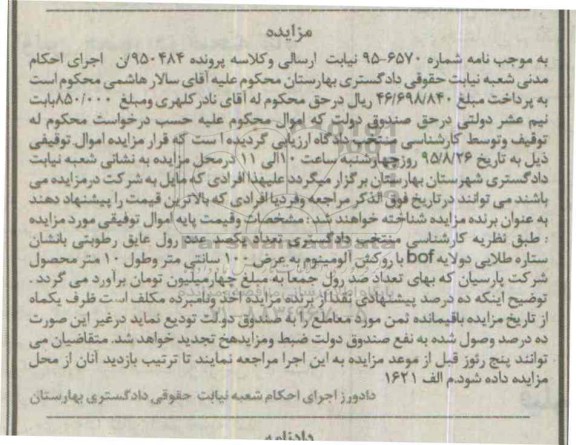 مزایده
به موجب نامه شماره ۶۵۷۰-۹۵ نیابت ارسالی وکلاسه پرونده ۹۵۰۴۸۴/ن اجرای احکام
مدنی شعبه نیابت حقوقی دادگستری بهارستان محکوم علیه آقای سالار هاشمی محکوم است
به پرداخت مبلغ ۴۶/۶۹۸/۸۴۰ ریال درحق محکوم له آقای نادر کلهری ومبلغ ۸۵۰/۰۰۰بابت
نیم عشر دولتی درحق صندوق دولت که اموال محکوم علیه حسب درخواست محکوم له
توقیف وتوسط کارشناسی منتخب دادگاه ارزیابی گردیده است که قرار مزایده اموال توقیفی
ذیل به تاریخ ۹۵/۸/۲۶ روزچهارشنبه ساعت ۱۰الی ۱۱ درمحل مزایده به نشانی شعبه نیابت
دادگستری شهرستان بهارستان برگزار میگردد علیهذا افرادی که مایل به شرکت درمزایده می
باشند می توانند درتاریخ فوق الذکر مراجعه وفردیا افرادی که بالاترین قیمت را پیشنهاد دهند
به عنوان برنده مزایده شناخته خواهند شد : مشخصات وقیمت پایه اموال توقیفی مورد مزایده
: طبق نظریه کارشناسی منتخب دادگستری تعداد یکصد عدد رول عایق رطوبتی بانشان
ستاره طلایی دولایه bof با روکش آلومینوم به عرض ۱۰۰ سانتی متر وطول ۱۰ متر محصول
شرکت پارسیان که بهای تعداد صد رول جمعا به مبلغ چهارمیلیون تومان برآورد می گردد .
توضیح اینکه ده درصد پیشنهادی نقدا از برنده مزایده اخذ ونامبرده مکلف است ظرف یکماه
از تاریخ مزایده باقیمانده ثمن مورد معامله را به صندوق دولت تودیع نماید درغیر این صورت
ده درصد وصول شده به نفع صندوق دولت ضبط ومزایدهخ تجدید خواهد شد. متقاضیان می
توانند پنج رئوز قبل از موعد مزایده به این اجرا مراجعه نمایند تا ترتیب بازدید آنان از محل
مزایده داده شود.م الف ۱۶۲۱
دادورز اجرای احکام شعبه نیابت حقوقی دادگستری بهارستان
دادنامه